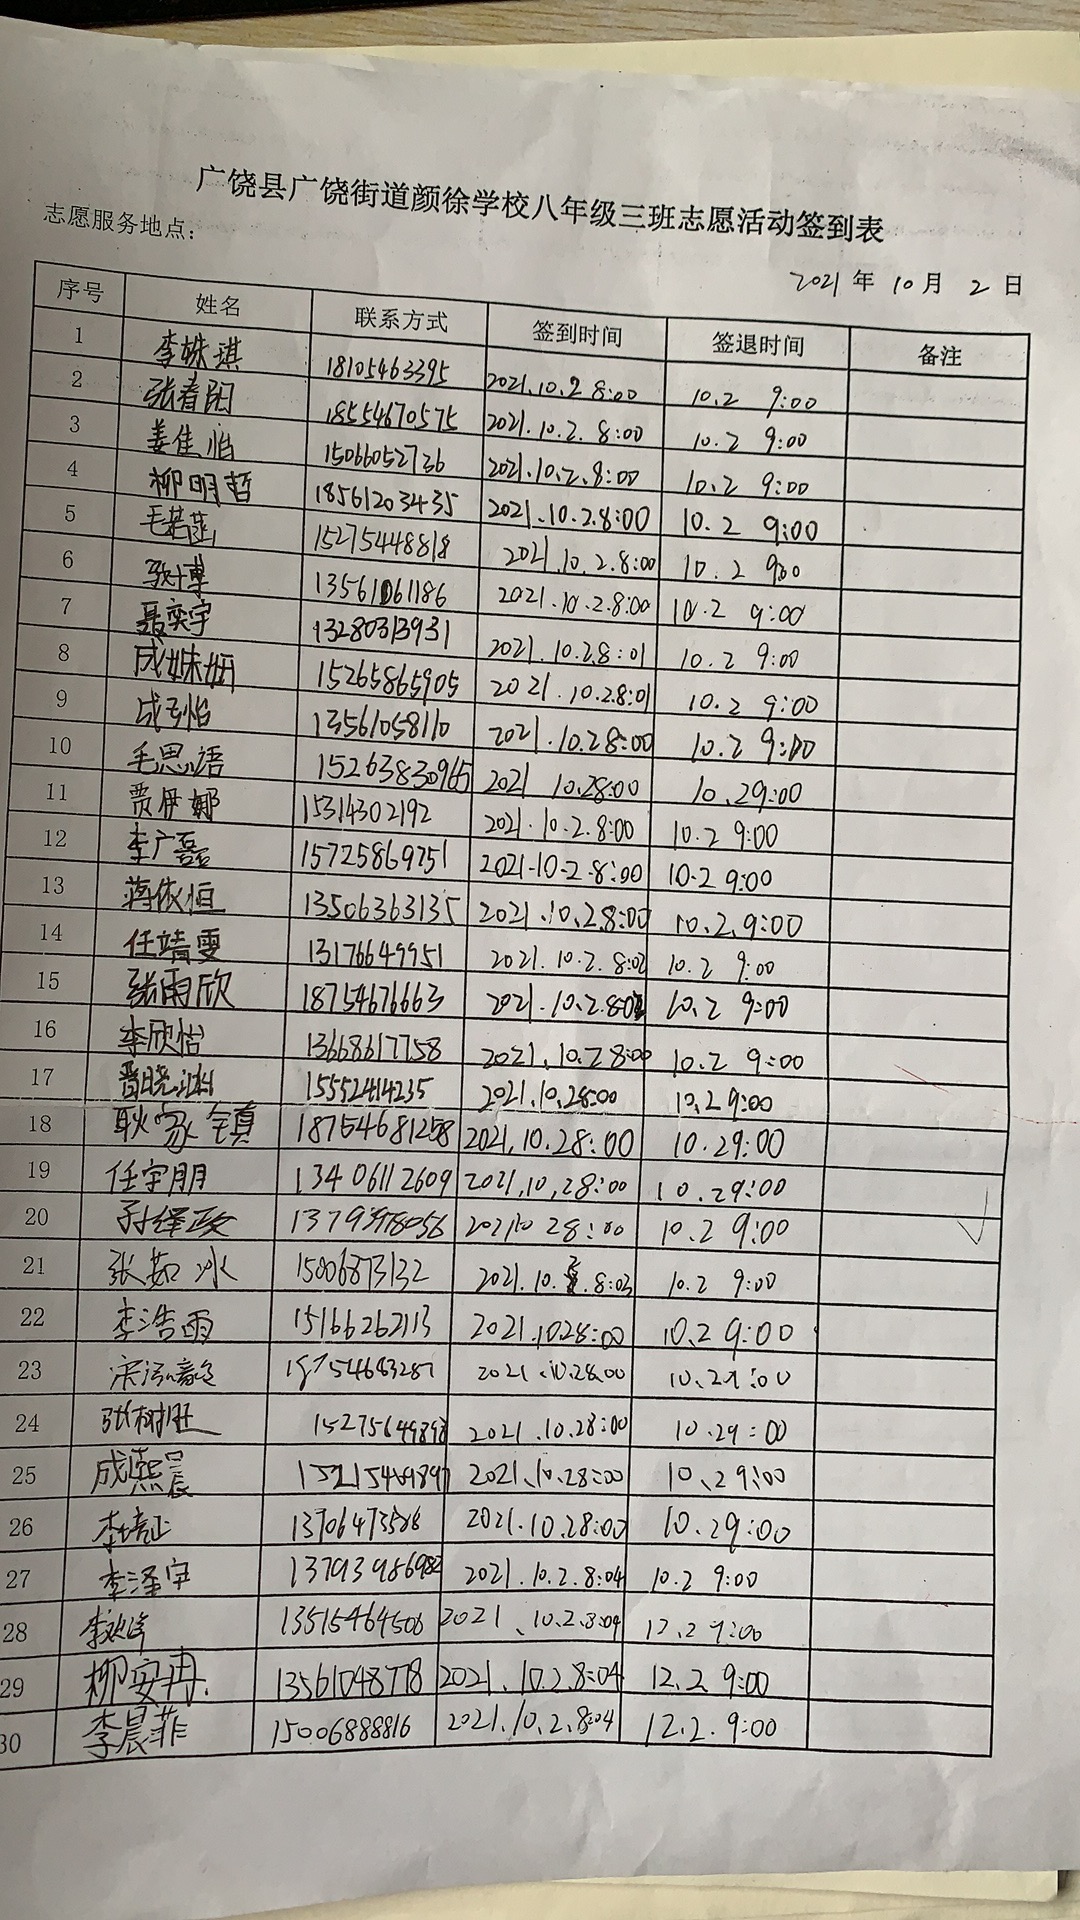 广饶县广饶街道颜徐学校八年级三班志愿活动签到表
志愿服务地点：
2021年 10月 2日
序号 姓名 联系方式 签到时间 签退时间 备注
1 李姝琪 18105463395 2021.10.2 8:00 10.2 9:00
2 张春阳 18554670575 2021.10.2. 8:00 10.2 9:00
3 姜佳怡 15066052736 2021.10.2.8:00 10.2 9:00
4 柳明哲 18561203435 2021.10.2.8:00 10.2 9:00
5 毛若菡 15275448818 2021.10.2.8:00 10.2 9:00
6 13561061186 2021.10.2.8:00 10.2 9:00
7 聂奕宇 13280313931 2021.10.2.8:01 10.2 9:00
8 成姝妍 15265865905 2021.10.2.8:01 10.2 9:00
9 成子怡 13561058110 2021.10.2 8:00 10.2 9:00
10 毛思语 15263830965 2021 10.28:00 10.29:00
11 贾伊娜 15314302192 2021.10.2.8:00 10.2 9:00
12 李广磊 15725869751 2021.10.2.8:00 10.2 9:00
13 蒋依恒 13506363135 2021.10.2.8:00 10.2.9:00
14 任靖雯 13176649951 2021.10.2.8:02 10.2 9:00
15 张雨欣 18754676663 2021.10.2.8:0 10.2 9:00
16 李欣怡 13668617758 2021.10.2 8:00 10.2 9:00
17 晋晓 15552414235 2021.10.28:00 10.29:00
18 耿家镇 18754681258 2021.10.28:00 10.29:00
19 任宇朋 13406112609 2021.10.28:00 10.29:00
20 孙绎政 2021.10 28:00 10.2 9:00
21 张茹冰 15006873132 2021.10. 8:03 10.2 9:00
22 李浩雨 15166262113 2021.10.28:00 10.2 9:00
23 宋 18754683287 2021.10.28:00 10.29:00
24 张树旺 2021.10.28:00 10.29:00
25 成熙晨 2021.10.28:00 10.29:00
26 李 2021.10.28:00 10.29:00
27 李泽宇 2021.10.2.8:04 10.2 9:00
28 李 13515464506 2021.10.2.8:04 12.2 9:00
29 柳安冉. 13561048778 2021.10.2.8:04 12.2 9:00
30 李晨菲 15006888816 2021.10.2.8:04 12.2.9:00